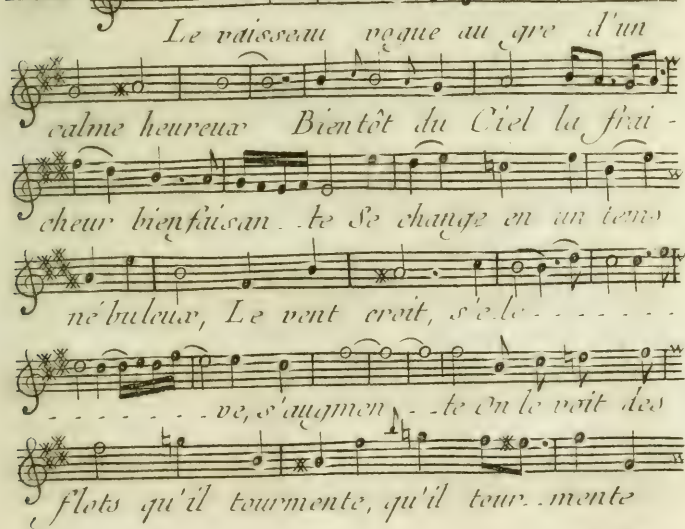 Le vaisseau vogue au gre d'un
calme heureux Bientôt du Ciel la frai-
cheur bienfaisan..te Se change en un tems
né buleux, Le vent croit, s'e.le- - - - - - - - -
- - - - - - - ve, s'augmen - ..te On le voit des
flots qu'il tourmente, qu'il tour..mente